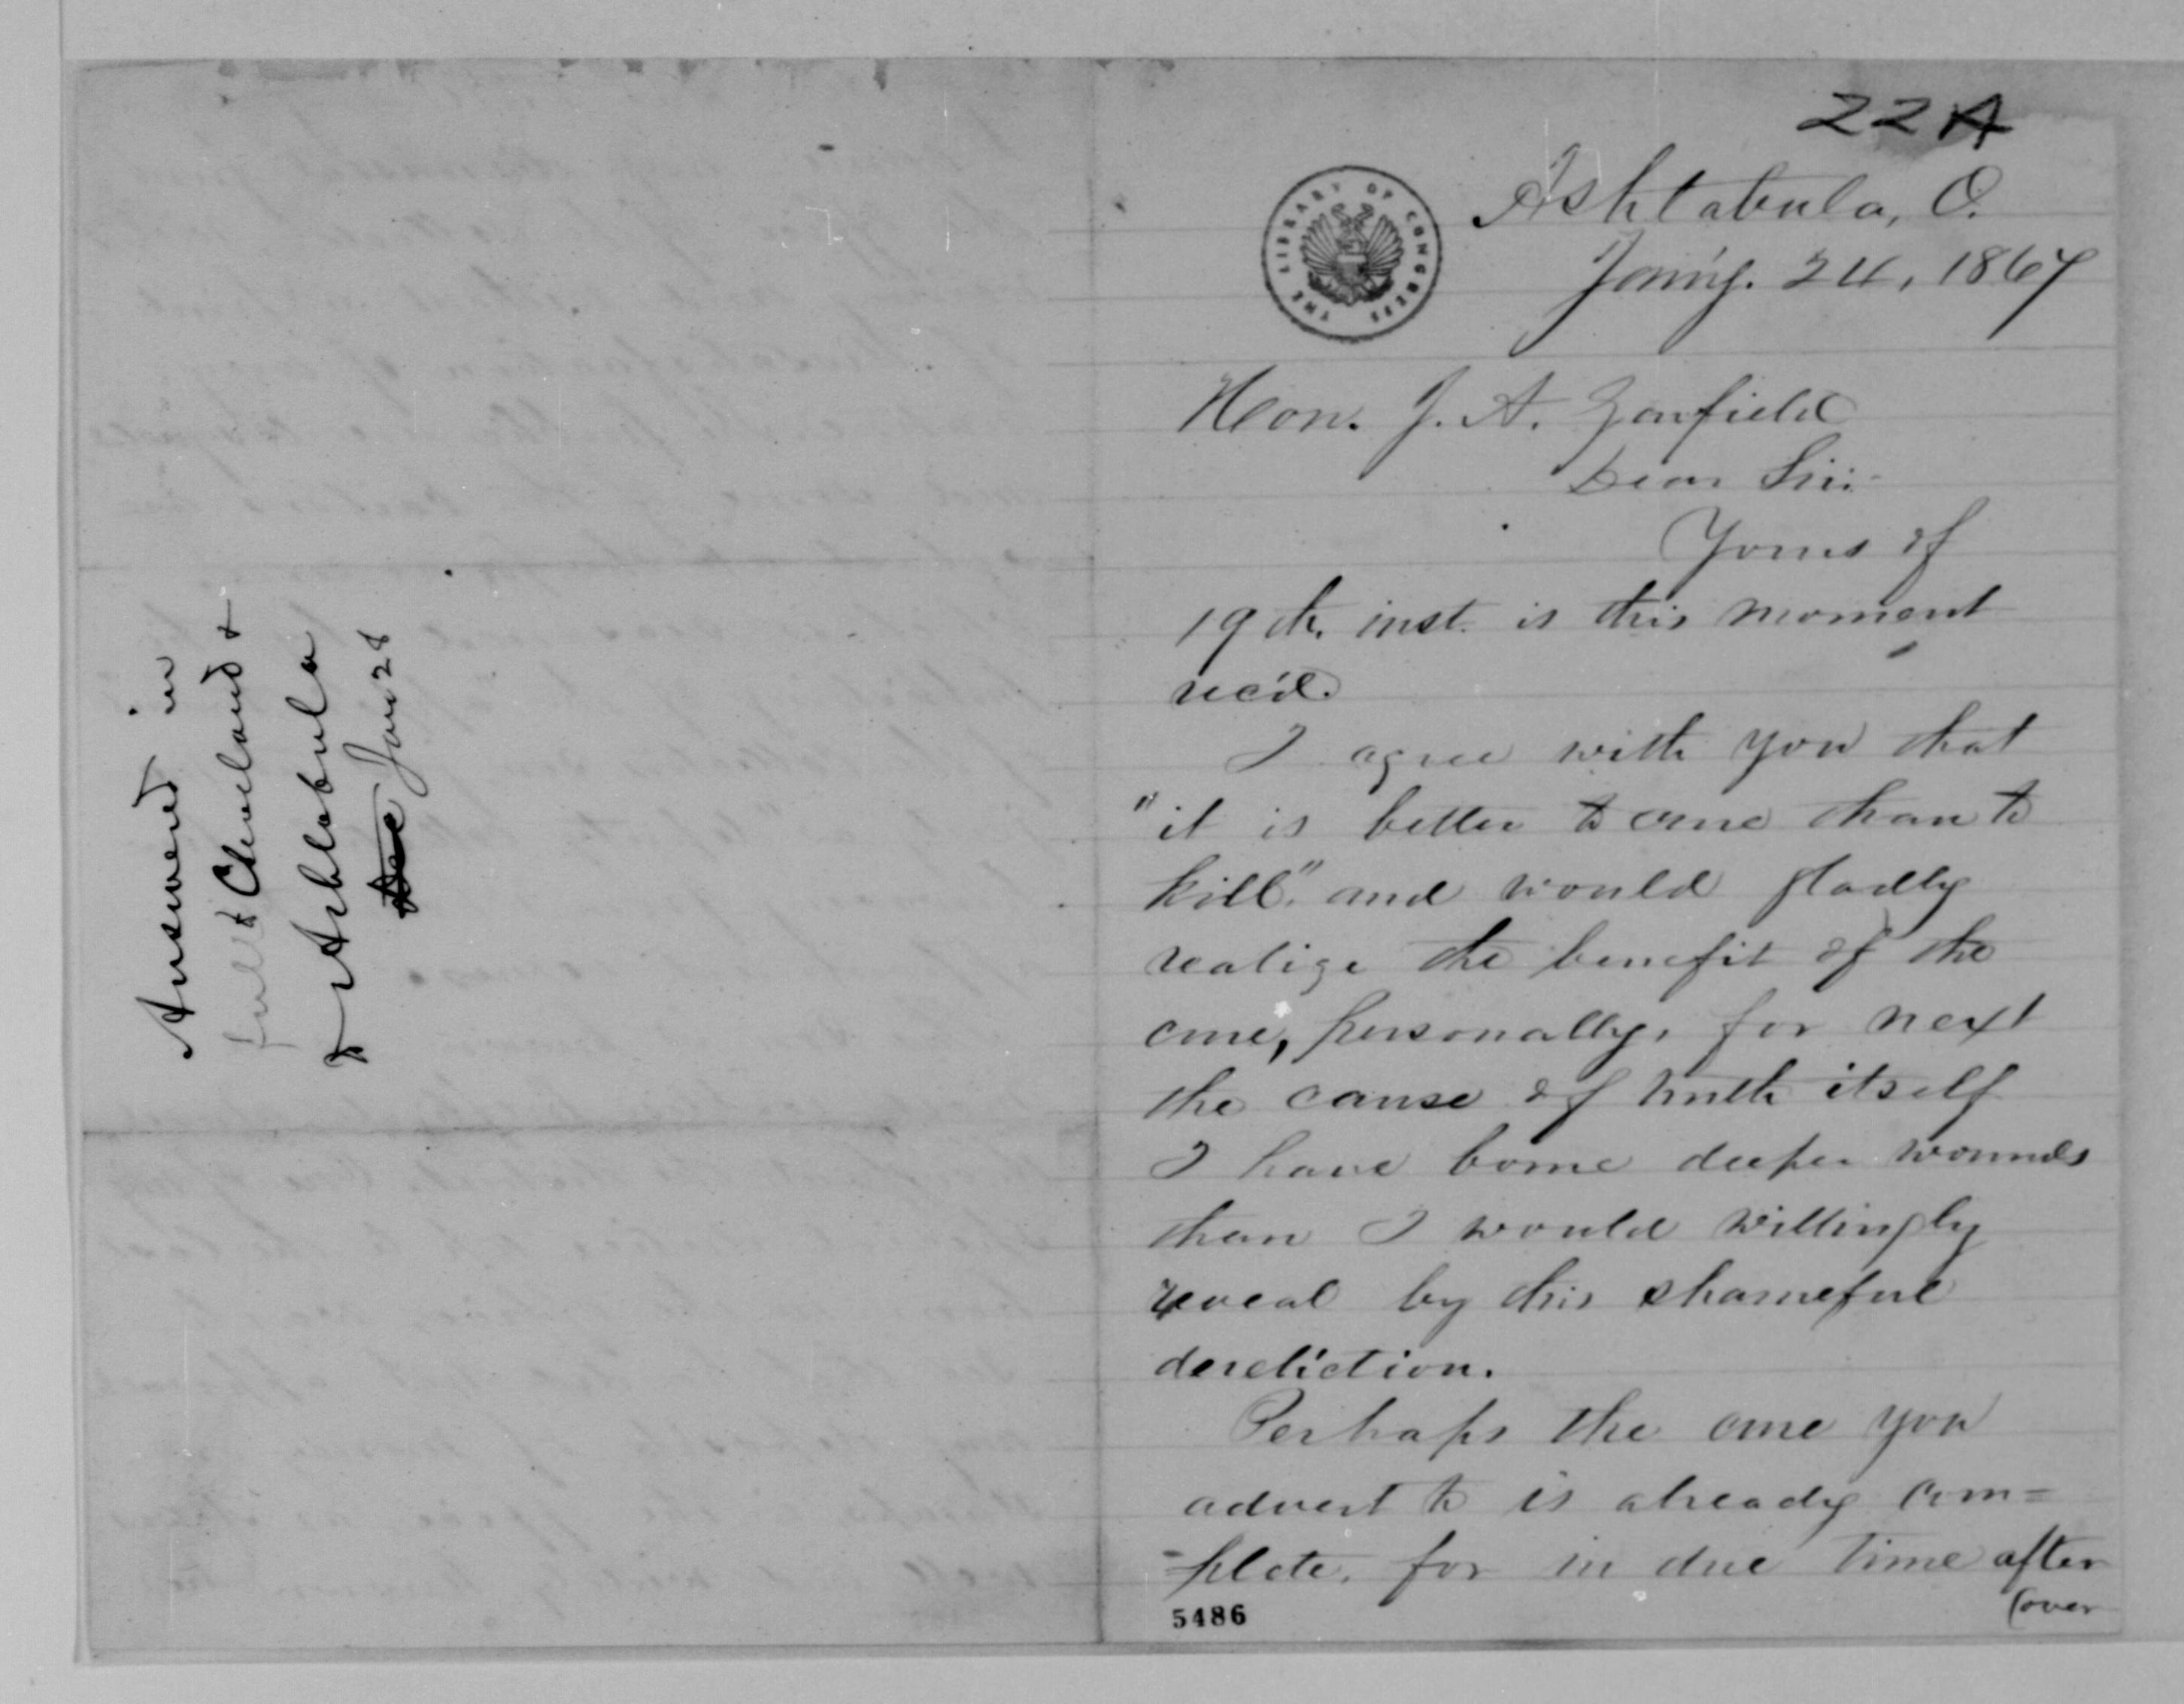 22A
THE LIBRARY OF CONGRESS
Ashtabula, O.
Jan'y. 24, 1867
Hon. J. A. Garfield
Dear Sir:-
Yours of
19th. inst. is this moment
rec'd.
I agree with you that
"it is better to cure than to
kill." and would gladly
realize the benefit of the
cure, personally, for next
the cause of truth itself
I have borne deeper wounds
than I would willingly
reveal by this shameful
dereliction.
Perhaps the cure you
advert to is already com=
=plete, for in due time after
(over
5486
Answered in
full & Cleveland &
& Ashtabula
Dec Jan 28